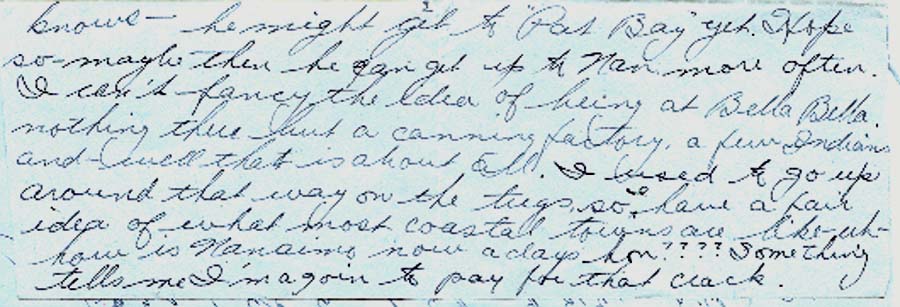 knows - he might get to "Pat Bay" yet. Hope
so - maybe then he can get up to Nan. more often.
I can't fancy the idea of being at Bella Bella.
nothing there but a canning factory, a few Indians
and - well that is about all. I used to go up
around that way on the tugs, so have a fair
idea of what most coastal towns are like - uh -
how is Nanaimo now adays hon???? Something
tells me I'm agoin to pay for that crack.